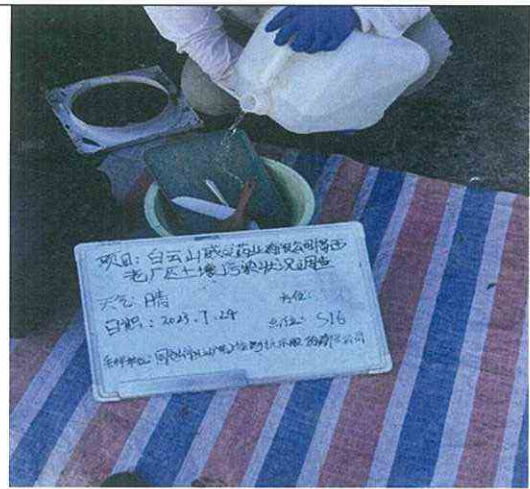 项目: 白云山威灵药业有限公司揭西
老厂区土壤污染状况调查
天气: 晴 方位:
日期: 2023.7.24 点位: S16
采样单位: 检测技术服务有限公司